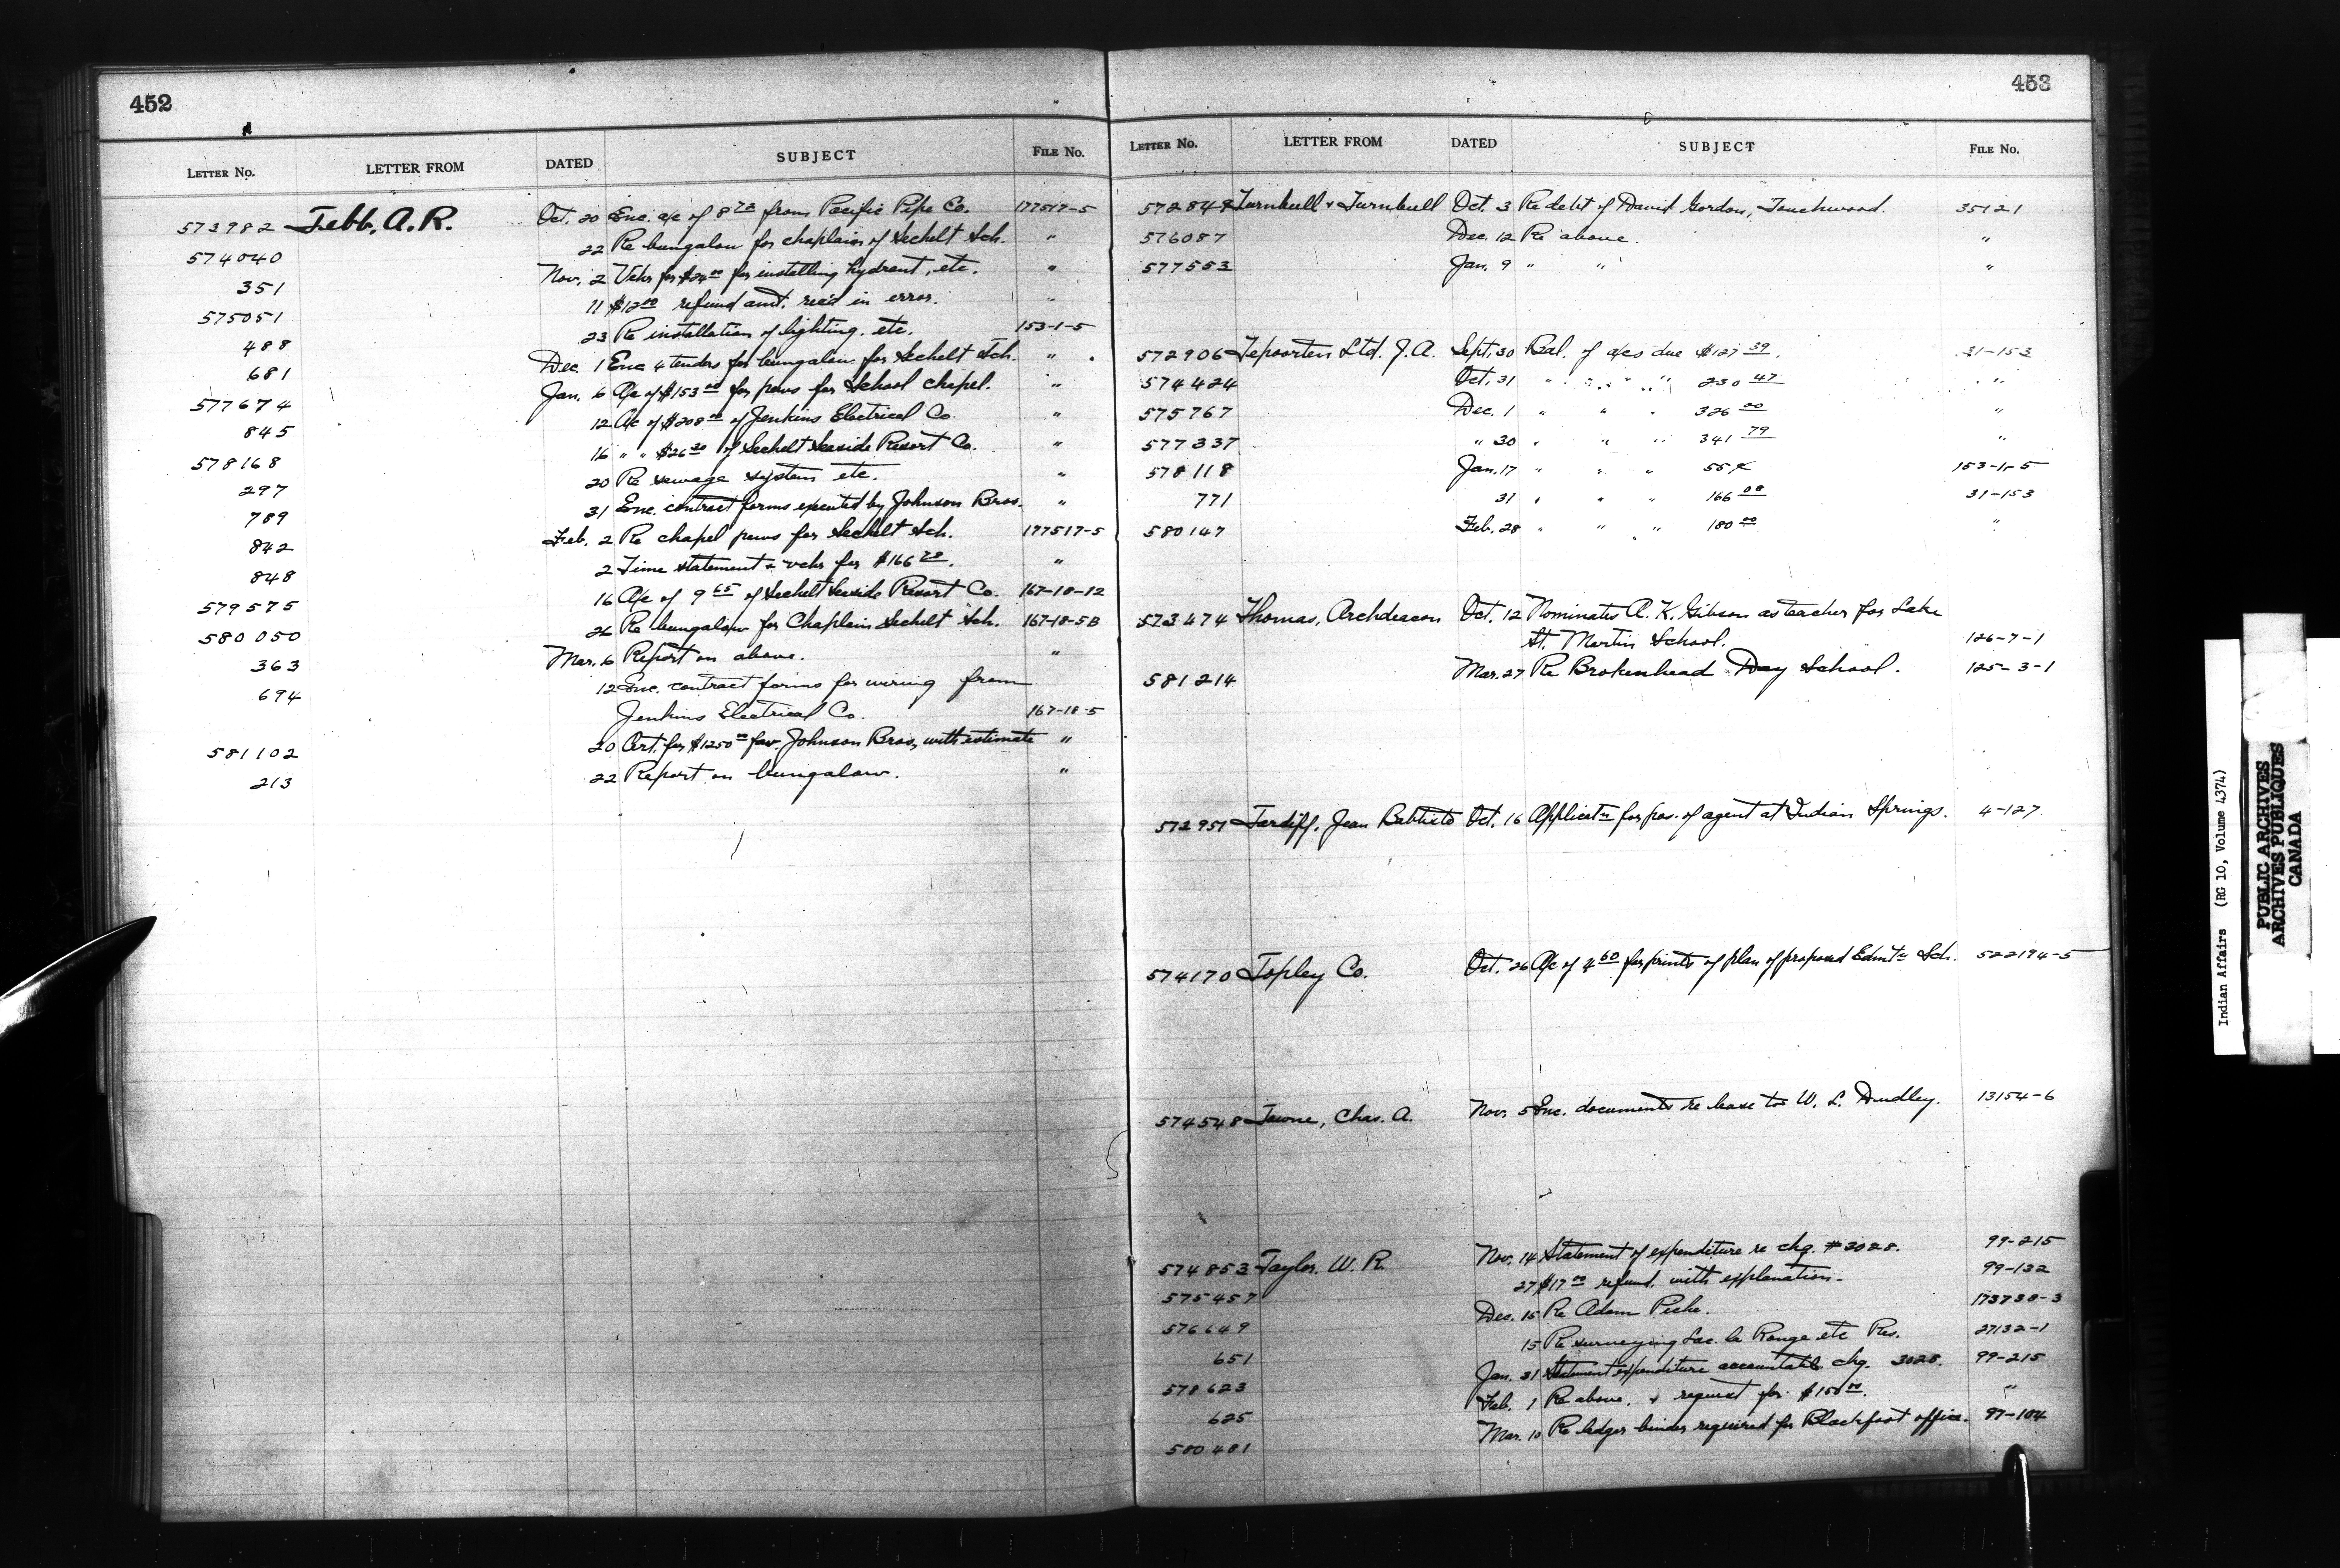 452
LETTER No. LETTER FROM DATED SUBJECT FILE No.
573982 Tebb, A.R. Oct. 20 Enc. a/c of 8 78 from Pacific Pipe Co. 177517-5
574040 22 Re bungalow for chaplain of Sechelt Sch. "
351 Nov. 2 Vchr for $24 00 for installing hydrant, etc. "
575051 11 $12 00 refund amt. rec'd in error. "
488 23 Re installation of lighting, etc. 153-1-5
681 Dec. 1 Enc 4 tenders for bungalow for Sechelt Sch. "
577674 Jan. 6 A/c of $153 00 for pews for School chapel. "
845 12 A/c of $208 00 of Jenkins Electrical Co. "
578168 16 " " $26 20 of Sechelt Seaside Resort Co. "
297 20 Re sewage system etc. "
789 31 Enc. contract forms executed by Johnson Bros. "
842 Feb. 2 Re chapel pews for Sechelt Sch. 177517-5
848 2 Time statement & vchr for $166 78. "
579575 16 A/c of 9 65 of Sechelt Seaside Resort Co. 167-18-12
580050 26 Re bungalow for Chaplain Sechelt Sch. 167-18-5B
363 Mar. 6 Report on above. "
694 12 Enc. contract forms for wiring from
Jenkins Electrical Co. 167-18-5
581102 20 Cert. for $1250 00 fav. Johnson Bros, with estimate "
213 22 Report on bungalow. "
453
LETTER No. LETTER FROM DATED SUBJECT FILE No.
572848 Turnbull & Turnbull Oct. 3 Re debt of David Gordon, Touchwood. 35121
576087 Dec. 12 Re above. "
577553 Jan. 9 " " "
572906 Tepoorten Ltd. J.A. Sept. 30 Bal. of a/cs due $127 39. 31-153
574424 Oct. 31 " " " " 230 47 "
575767 Dec. 1 " " " 326 00 "
577337 " 30 " " " 341 79 "
578118 Jan. 17 " " " 55 153-1-5
771 31 " " " 166 08 31-153
580147 Feb. 28 " " " 180 00 "
573474 Thomas, Archdeacon Oct. 12 Nominates A. K. Gibson as teacher for Lake
St. Martin School. 126-7-1
581214 Mar. 27 Re Brokenhead Day School. 125-3-1
572951 Tardiff, Jean Babtiste Oct. 16 Applicatn for pos. of agent at Indian Springs. 4-127
574170 Topley Co. Oct. 26 A/c of 4 60 for prints of plan of proposed Edmtn Sch. 522194-5
574548 Towne, Chas. A. Nov. 5 Enc. documents re lease to W. L. Dudley. 13154-6
574853 Taylor, W. R. Nov. 14 Statement of expenditure re chq. #3028. 99-215
575457 27 $17 00 refund, with explanation. 99-132
576649 Dec. 15 Re Adam Piche. 173738-3
651 15 Re surveying Lac. la Ronge etc Res. 27132-1
578623 Jan. 31 Statement expenditure accountable chq. 3028. 99-215
625 Feb. 1 Re above, & request for $150 00. "
580481 Mar. 10 Re ledger binder required for Blackfoot office. 97-104
Indian Affairs (RG 10, Volume 4374)
PUBLIC ARCHIVES
ARCHIVES PUBLIQUES
CANADA